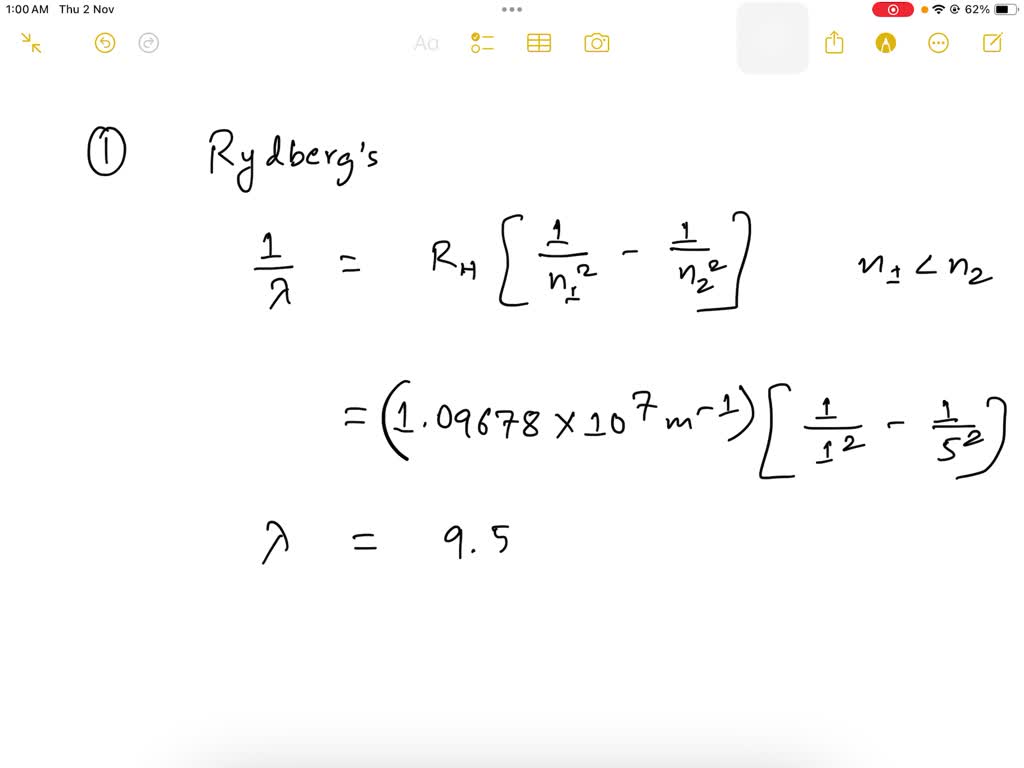 1:00 AM Thu 2 Nov
62%
Aa
① Rydberg's
1/λ = R_H [1/n₁² - 1/n₂²] n₁ < n₂
= (1.09678 × 10⁷ m⁻¹) [1/1² - 1/5²]
λ = 9.5